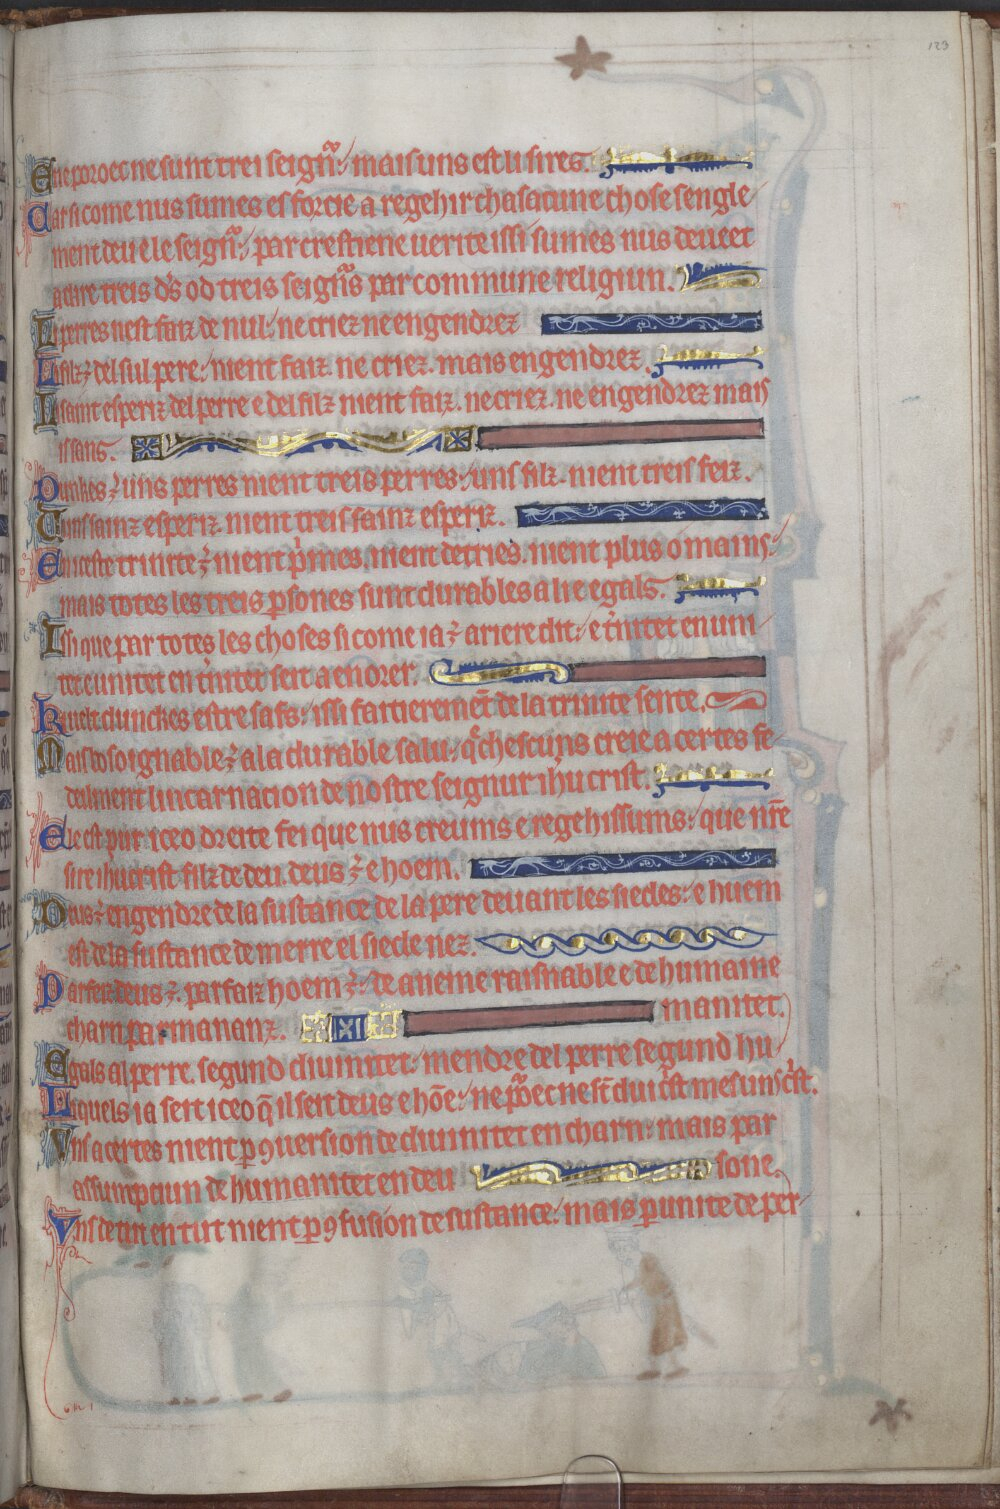 123
E ne poroec ne sunt trei seigñ: mais uns est li sires.
Car si come nus sumes esforcie a regehir chascune chose sengle
ment deu e le seigñ: par crestiene uerite issi sumes nus deueet
a dire treis d's od treis seigñs par commune religiun.
Li perres nest faiz de nul: ne criez ne engendrez
Li filz ⁊ del sul pere: nient faiz. ne criez. mais engendrez.
Li saint esperiz del perre e del filz nient faiz. ne criez. ne engendrez mais
issans.
Dunkes ⁊ uns perres nient treis perres: uns filz. nient treis feiz.
uns sainz esperiz. nient treis sainz esperiz.
E en ceste trinite ⁊ nient p'mes. nient detries. nient plus o mains:
mais totes les treis psones sunt durables a lie egals.
Issi que par totes les choses si come ia ⁊ ariere dit: e t'nitet en uni
tet e unitet en t'nitet seit a enorer.
Ki uelt dunckes estre safs: issi fattierem̃t de la trinite sente.
Mais bosoignable ⁊ a la durable salu: q' chescuns creie a certes fe
delment lincarnacion de nostre seignur ih'u crist.
Ele est pur iceo dreite fei que nus creums e regehissums: que nr̃e
sire ih'u crist filz de deu. deus ⁊ e hoem.
Deus ⁊ engendre de la sustance de la pere deuant les siecles: e huem
est de la sustance de merre el siecle nez.
Parfez deus ⁊. parfaiz hoem ⁊: de aneme raisnable e de humaine
charn parmananz. manitet.
Egals al perre. segund diuinitet: mendre del perre segund hu
Liquels ia seit iceo q̃ il seit deus e hõe: ne p̃oec ne st̃ dui c'st mes uns c'st.
Uns a certes nient p ꝯuersion de diuinitet en charn: mais par
assumptiun de humanitet en deu sone.
Uns de tut en tut nient p ꝯfusion de sustance: mais p unite de per